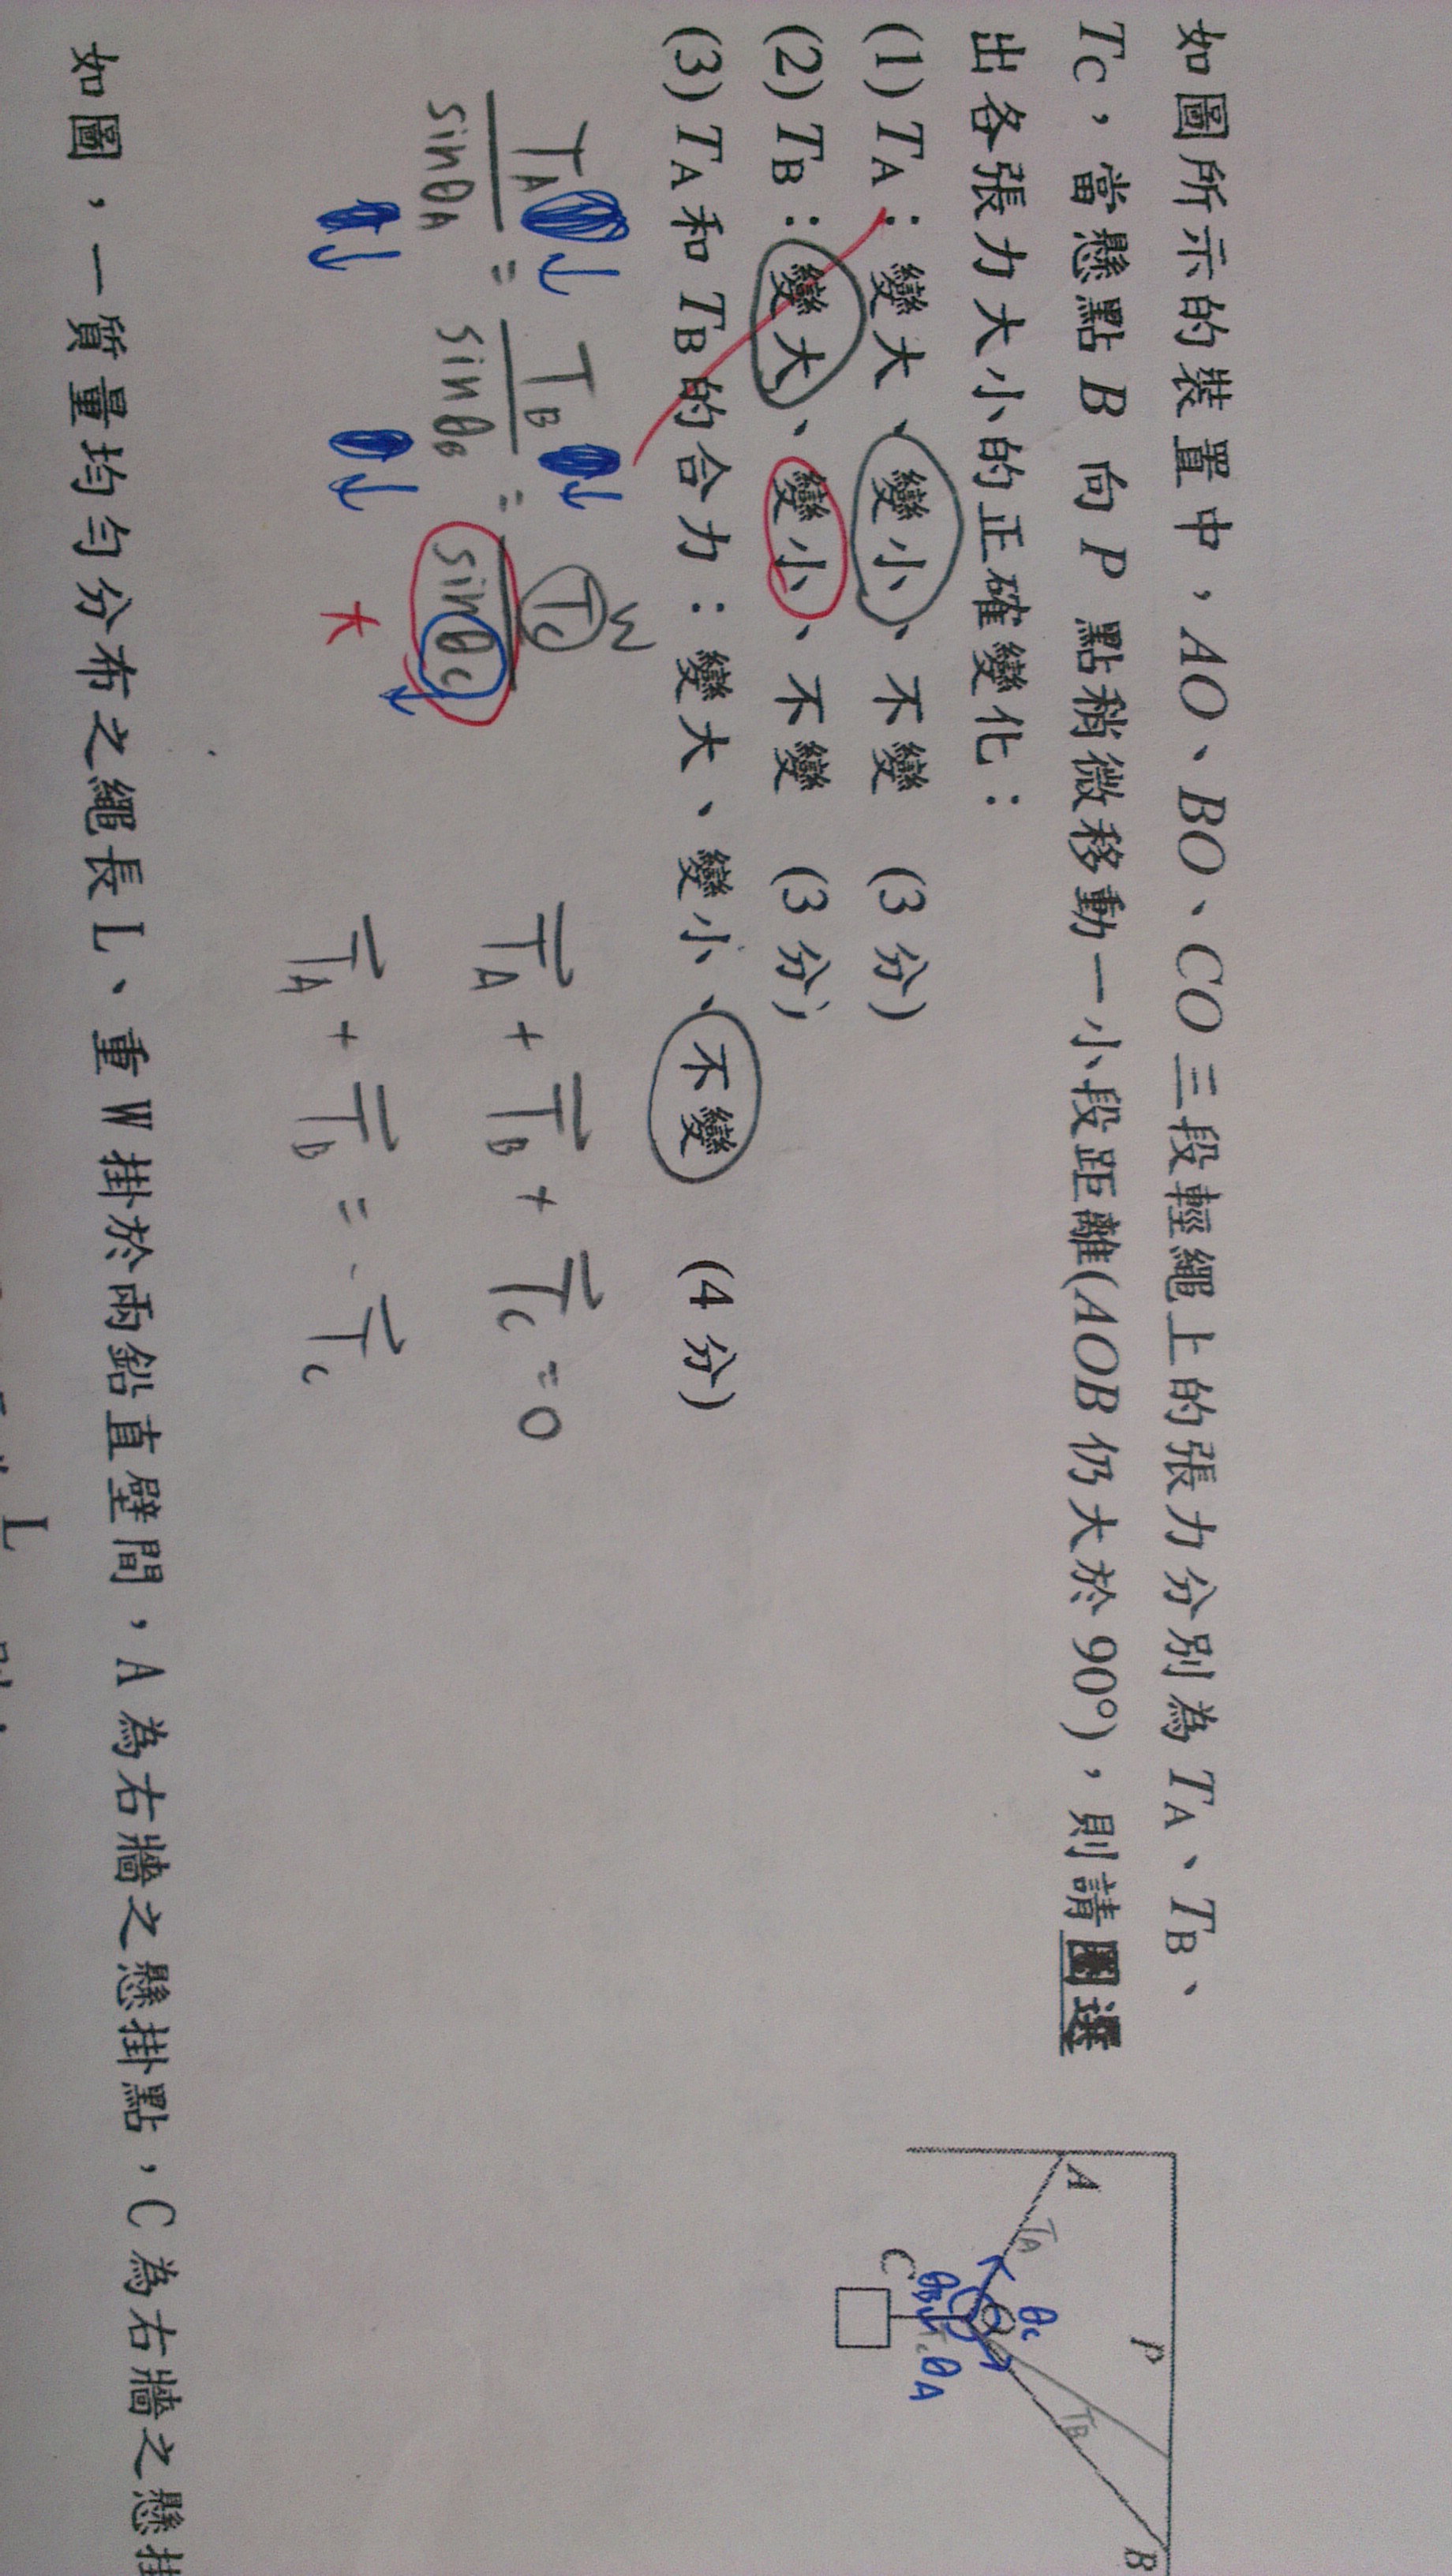 如圖所示的裝置中，AO、BO、CO 三段輕繩上的張力分別為 TA、TB、
TC，當懸點 B 向 P 點稍微移動一小段距離(AOB 仍大於 90°)，則請圈選
出各張力大小的正確變化：
(1) TA：變大、變小、不變 (3 分)
(2) TB：變大、變小、不變 (3 分)
(3) TA 和 TB 的合力：變大、變小、不變 (4 分)
A
P
B
O
C
TA
TB
Tc
θc
θB
θA
TA↓ / sinθA↓ = TB↓ / sinθB↓ = Tc / sinθc
W
大
TA + TB + TC = 0
TA + TB = - TC
如圖，一質量均勻分布之繩長 L、重 W 掛於兩鉛直壁間，A 為右牆之懸掛點，C 為右牆之懸掛
L